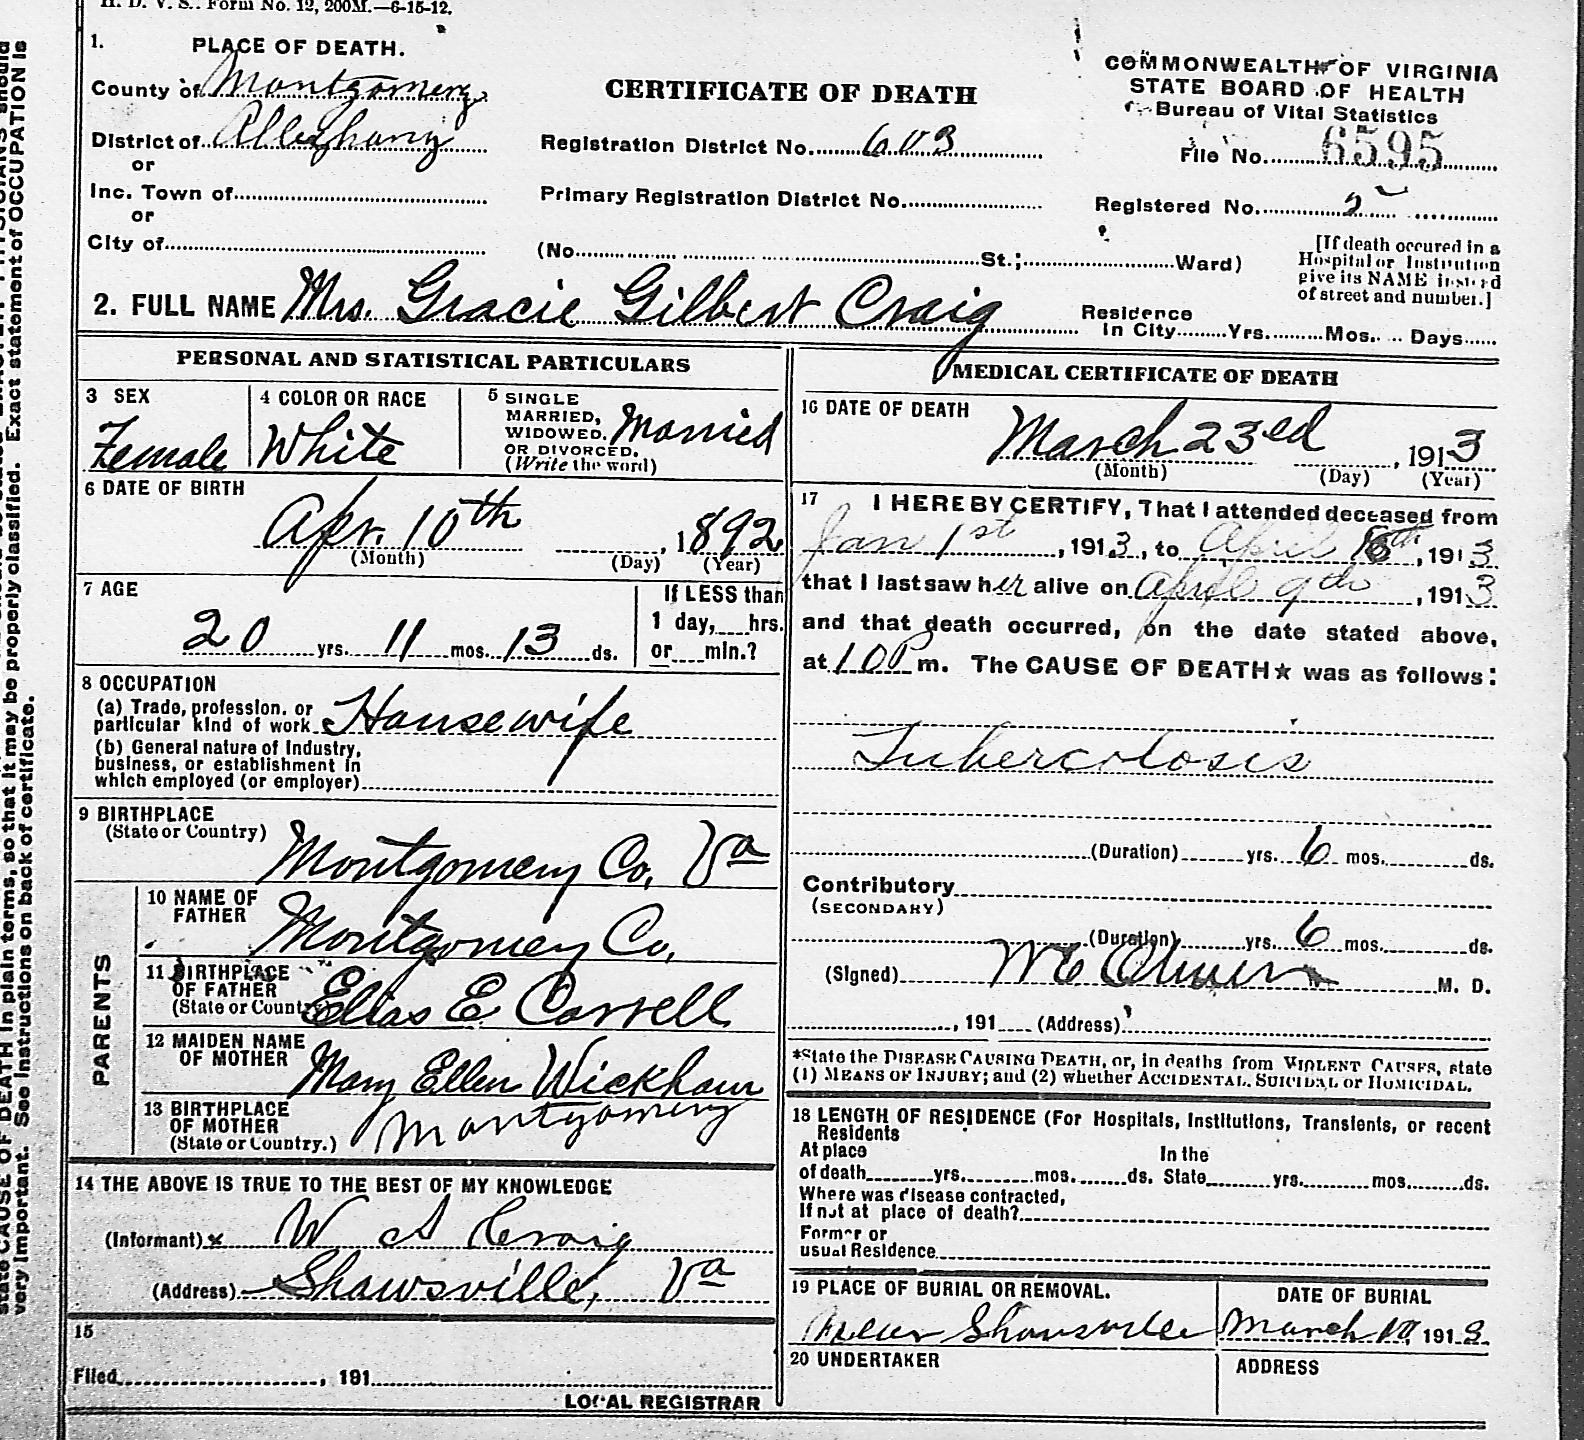 H. D. V. S. Form No. 12, 200M.—6-15-12.
1. PLACE OF DEATH.
County of Montgomery
District of Alleghany
or
Inc. Town of
or
City of
CERTIFICATE OF DEATH
Registration District No. 603
Primary Registration District No.
(No. St.; Ward)
COMMONWEALTH OF VIRGINIA
STATE BOARD OF HEALTH
Bureau of Vital Statistics
File No. 6595
Registered No.
[If death occured in a
Hospital or Institution
give its NAME instead
of street and number.]
2. FULL NAME Mrs. Gracie Gilbert Craig
Residence
In City Yrs. Mos. Days
PERSONAL AND STATISTICAL PARTICULARS
3 SEX
Female
4 COLOR OR RACE
White
5 SINGLE
MARRIED,
WIDOWED.
OR DIVORCED.
(Write the word)
Married
6 DATE OF BIRTH
Apr. 10th , 1892
(Month) (Day) (Year)
7 AGE
20 yrs. 11 mos. 13 ds.
If LESS than
1 day, hrs.
or min.?
8 OCCUPATION
(a) Trade, profession. or
particular kind of work Housewife
(b) General nature of Industry,
business, or establishment in
which employed (or employer)
9 BIRTHPLACE
(State or Country)
Montgomery Co, Va
PARENTS
10 NAME OF
FATHER
Montgomery Co,
11 BIRTHPLACE
OF FATHER
(State or Country)
Elias E. Correll
12 MAIDEN NAME
OF MOTHER
Mary Ellen Wickham
13 BIRTHPLACE
OF MOTHER
(State or Country.)
Montgomery
14 THE ABOVE IS TRUE TO THE BEST OF MY KNOWLEDGE
(Informant) x W S Craig
(Address) Shawsville, Va
15
Filed , 191
LOCAL REGISTRAR
MEDICAL CERTIFICATE OF DEATH
16 DATE OF DEATH
March 23ed , 1913
(Month) (Day) (Year)
17 I HEREBY CERTIFY, That I attended deceased from
Jan 1st , 1913, to April , 1913
that I last saw her alive on April 9th , 1913
and that death occurred, on the date stated above,
at 10 P m. The CAUSE OF DEATH★ was as follows:
Tubercolosis
(Duration) yrs. 6 mos. ds.
Contributory
(SECONDARY)
(Duration) yrs. 6 mos. ds.
(Signed) M. D.
, 191 (Address)
*State the DISEASE CAUSING DEATH, or, in deaths from VIOLENT CAUSES, state
(1) MEANS OF INJURY; and (2) whether ACCIDENTAL. SUICIDAL or HOMICIDAL.
18 LENGTH OF RESIDENCE (For Hospitals, Institutions, Transients, or recent
Residents
At place
of death yrs. mos. ds.
In the
State yrs. mos. ds.
Where was disease contracted,
If not at place of death?
Former or
usual Residence
19 PLACE OF BURIAL OR REMOVAL.
Near Shawsville
DATE OF BURIAL
March , 1913
20 UNDERTAKER
ADDRESS
state CAUSE OF DEATH in plain terms, so that it may be properly classified. Exact statement of OCCUPATION is
very important. See instructions on back of certificate.